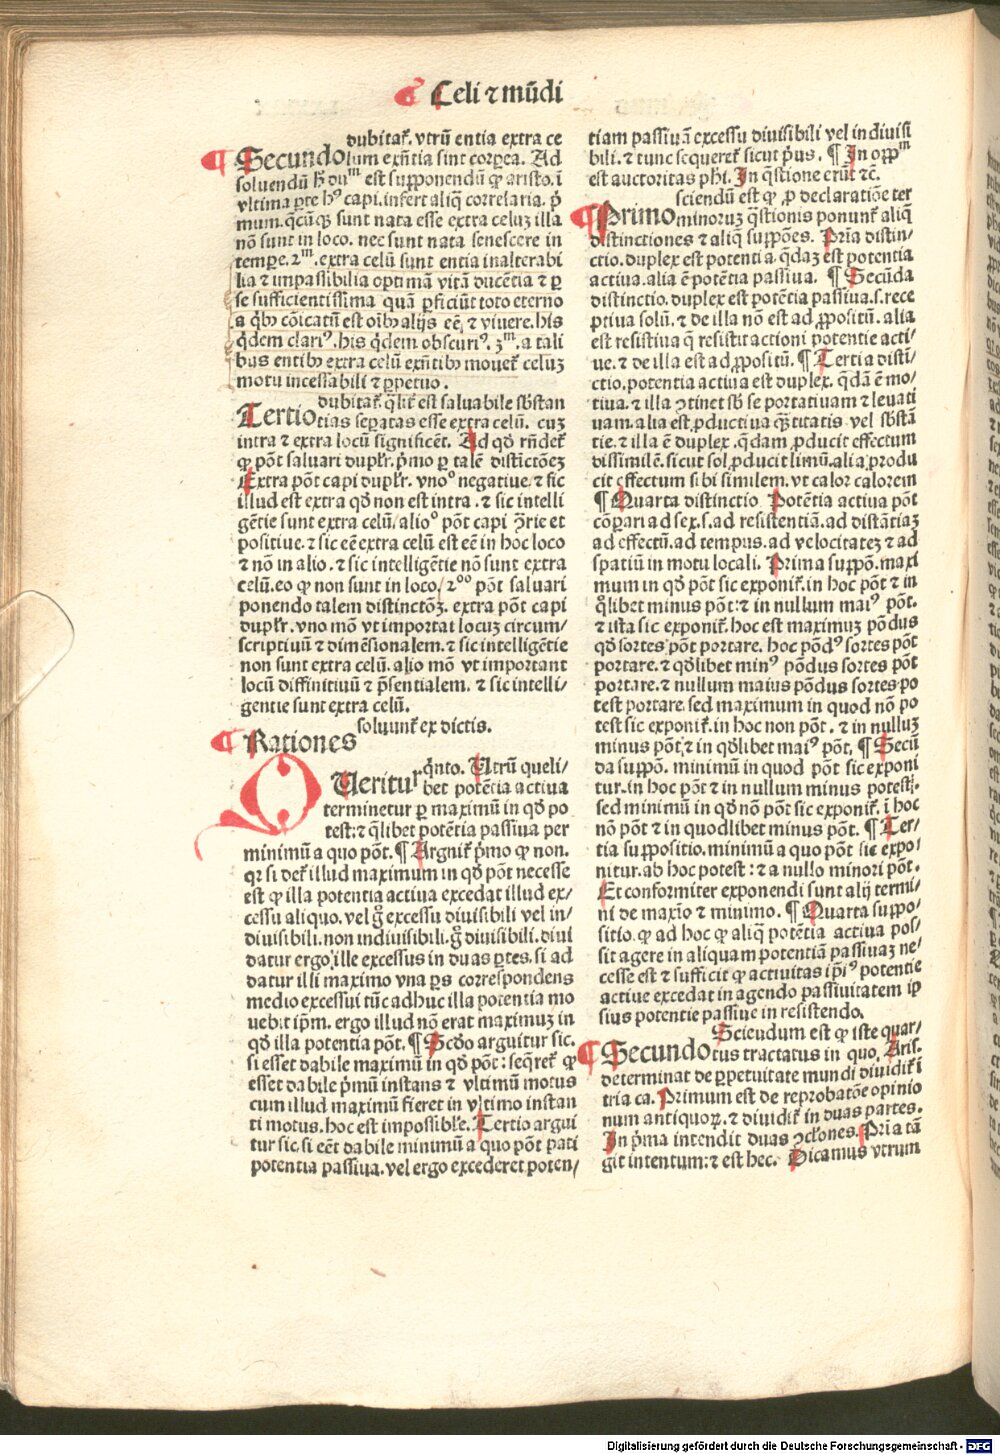 ¶ Celi ⁊ mūdi
dubitat̄. vtrū entia extra ce
¶ Secundo lum exn̄tia sint corꝑea. Ad
soluendū h̄ duᵐ est supponendū ꝙ aristo. ī
vltima ꝑte hꝰ capi. infert aliq̄ correlaria. p̄
mum. q̄cūqꝫ sunt nata esse extra celuꝫ illa
nō sunt in loco. nec sunt nata senescere in
tempe. 2ᵐ. extra celū sunt entia inalterabi
lia ⁊ impassibilia optimā vitā ducētia ⁊ ꝑ
se sufficientissima quā ꝑficiūt toto eterno
a qͥbꝰ cōicatū est oībꝰ alijs eē, ⁊ viuere. his
q̇dem clariꝰ. his q̇dem obscuriꝰ. 3ᵐ. a tali
bus entibꝰ extra celū exn̄tibꝰ mouet̄ celuꝫ
motu incessabili ⁊ ꝑpetuo.
dubitat̄. q̄lit̄ est saluabile sb̄stan
Tertio tias seꝑatas esse extra celū. cuꝫ
intra ⁊ extra locū significēt. Ad qđ rn̄det̄
ꝙ pōt saluari duplr̄. p̄mo ꝑ talē distīctōeꝫ
Extra pōt capi duplr̄. vnoº negatiue, ⁊ sic
illud est extra qđ non est intra. ⁊ sic intelli
gētie sunt extra celū, alioº pōt capi ꝯrie et
positiue. ⁊ sic eē extra celū est eē in hoc loco
⁊ nō in alio. ⁊ sic intelligētie nō sunt extra
celū. eo ꝙ non sunt in loco, 2ºº pōt saluari
ponendo talem distinctōꝫ. extra pōt capi
duplr̄. vno mō vt importat locuꝫ circum/
scriptiuū ⁊ dimēsionalem. ⁊ sic intelligētie
non sunt extra celū. alio mō vt important
locū diffinitiuū ⁊ p̄sentialem. ⁊ sic intelli/
gentie sunt extra celū.
soluunt̄ ex dictis.
¶ Rationes
q̇nto. Utrū queli/
QUeritur bet potētia actiua
terminetur ꝑ maximū in qđ po
test: ⁊ q̄libet potētia passiua per
minimū a quo pōt. ¶ Arguit̄ p̄mo ꝙ non.
qꝛ si det̄ illud maximum in qđ pōt necesse
est ꝙ illa potentia actiua excedat illud ex/
cessu aliquo. vel g̊ excessu diuisibili vel in/
diuisibili. non indiuisibili. g̊ diuisibili. diui
datur ergo, ille excessus in duas ꝑtes. si ad
datur illi maximo vna ꝑs correspondens
medio excessui tūc adhuc illa potentia mo
uebit ip̄m. ergo illud nō erat maximuꝫ in
qđ illa potentia pōt. ¶ Scd̄o arguitur sic.
si esset dabile maximū in qđ pōt: seq̄ret̄ ꝙ
esset dabile p̄mū instans ⁊ vltimū motus
cum illud maximū fieret in vltimo instan
ti motus. hoc est impossibl̄e. Tertio argui
tur sic. si eēt dabile minimū a quo pōt pati
potentia passiua. vel ergo excederet poten/
tiam passiuā excessu diuisibili vel indiuisi
bili. ⁊ tunc sequeret̄ sicut pͥus. ¶ In oppᵐ
est auctoritas phī. In q̄stione erūt ⁊c̄.
sciendū est ꝙ ꝓ declaratiōe ter
¶ Primo minoruꝫ q̄stionis ponunt̄ aliq̄
distinctiones ⁊ aliq̄ suppōes. Pria distin/
ctio. duplex est potentia. q̄daꝫ est potentia
actiua. alia ē potētia passiua. ¶ Secūda
distinctio. duplex est potētia passiua. s. rece
ptiua solū. ⁊ de illa nō est ad ꝓpositū. alia
est resistiua q̄ resistit actioni potentie acti/
ue. ⁊ de illa est ad ꝓpositū. ¶ Tertia distī/
ctio. potentia actiua est duplex. q̄dā ē mo/
tiua. ⁊ illa ꝯtinet sb̄ se portatiuam ⁊ leuati
uam. alia est ꝓductiua q̄ntitatis vel sb̄stā
tie. ⁊ illa ē duplex. q̄dam ꝓducit effectum
dissimilē. sicut sol ꝓducit limū. alia produ
cit effectum sibi similem. vt calor calorem
¶ Quarta distinctio. Potētia actiua pōt
cōꝑari ad sex. s. ad resistentiā. ad distātiaꝫ
ad effectū. ad tempus. ad velocitateꝫ ⁊ ad
spatiū in motu locali. Prima suppō. maxi
mum in qđ pōt sic exponit̄. in hoc pōt ⁊ in
q̄libet minus pōt: ⁊ in nullum maiꝰ pōt.
⁊ ista sic exponit̄. hoc est maximuꝫ pōdus
qđ sortes pōt portare. hoc pōdꝰ sortes pōt
portare. ⁊ qđlibet minꝰ pōdus sortes pōt
portare. ⁊ nullum maius pōdus sortes po
test portare. sed maximum in quod nō po
test sic exponit̄. in hoc non pōt. ⁊ in nulluꝫ
minus pōt, ⁊ in qđlibet maiꝰ pōt. ¶ Secū
da suppō. minimū in quod pōt sic exponi
tur. in hoc pōt ⁊ in nullum minus potest:
sed minimū in qđ nō pōt sic exponit̄. ī hoc
nō pōt ⁊ in quodlibet minus pōt. ¶ Ter/
tia suppositio. minimū a quo pōt sic expo/
nitur. ab hoc potest: ⁊ a nullo minori pōt.
Et conformiter exponendi sunt alij termi/
ni de maxīo ⁊ minimo. ¶ Quarta suppo/
sitio. ꝙ ad hoc ꝙ aliq̄ potētia actiua pos/
sit agere in aliquam potentiā passiuaꝫ ne/
cesse est ⁊ sufficit ꝙ actiuitas ip̄iꝰ potentie
actiue excedat in agendo passiuitatem ip
sius potentie passiue in resistendo.
Sciendum est ꝙ iste quar/
¶ Secundo tus tractatus in quo. Aris.
determinat de ꝑpetuitate mundi diuidit̄ ī
tria ca. Primum est de reprobatōe opinio
num antiquoꝝ. ⁊ diuidit̄ in duas partes.
In p̄ma intendit duas ꝯclōnes. Pria tā
git intentum: ⁊ est hec. Dicamus vtrum
Digitalisierung gefördert durch die Deutsche Forschungsgemeinschaft - DFG